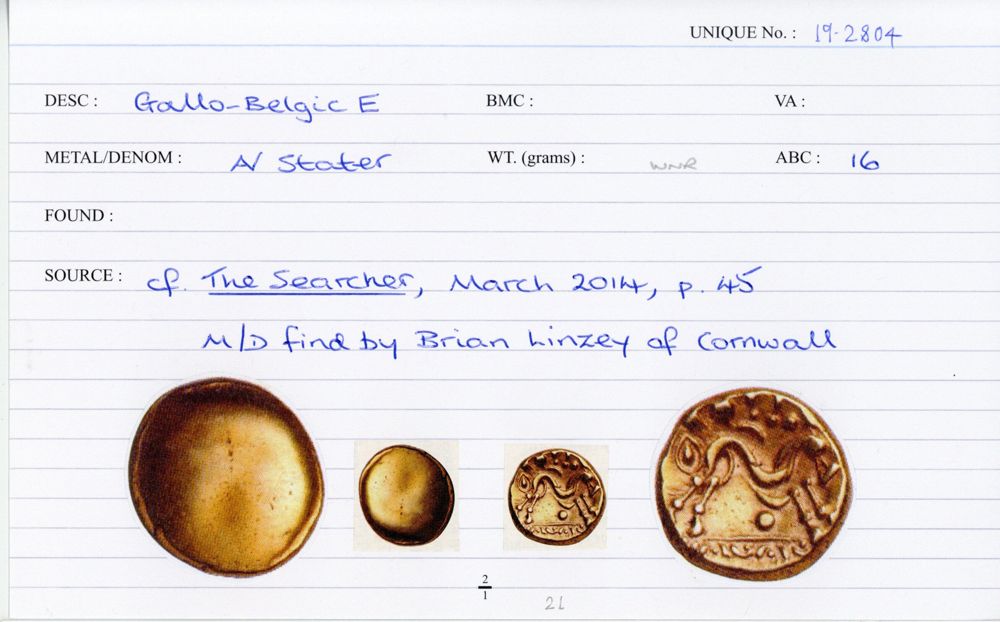 UNIQUE No. : 19-2804
DESC : Gallo-Belgic E BMC : VA :
METAL/DENOM : AV Stater WT. (grams) : WNR ABC : 16
FOUND :
SOURCE : cf. The Searcher, March 2014, p. 45
M/D find by Brian Linzey of Cornwall
2
1
21